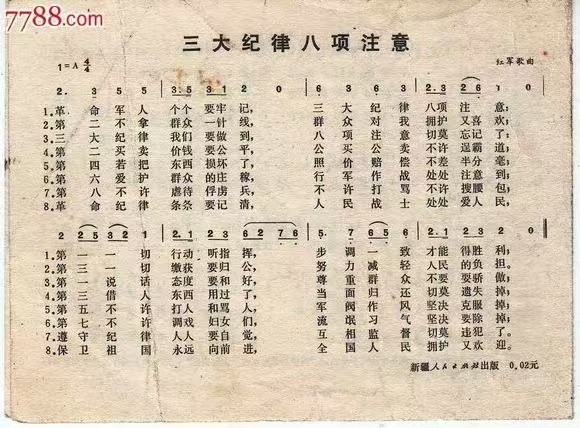 7788.com
三大纪律八项注意
1=A 4/4
红军歌曲
2. 3 5 5 | 3.5 3 1 2 0 | 6 3 6 3 | 2.3 2 6 1 0 |
1.革命军人 个个要牢记, 三大纪律 八项注意;
2.第二不拿 群众一针线, 群众对我 拥护又喜欢;
3.三大纪律 我们要做到, 八项注意 切莫忘记了;
4.第二买卖 价钱要公平, 公买公卖 不许逞霸道;
5.第四若把 东西损坏了, 照价赔偿 不差半分毫;
6.第六爱护 群众的庄稼, 行军作战 处处注意到;
7.第八不许 虐待俘虏兵, 不许打骂 不许搜腰包;
8.革命纪律 条条要记清, 人民战士 处处爱人民,
1.第一一切 行动听指挥, 步调一致 才能得胜利,
2.第三一切 缴获要归公, 努力减轻 人民的负担。
3.第一说话 态度要和好, 尊重群众 不要要骄傲,
4.第三借人 东西用过了, 当面归还 切莫遗失掉;
5.第五不许 打人和骂人, 军阀作风 坚决克服掉;
6.第七不许 调戏妇女们, 流氓习气 坚决要除掉;
7.遵守纪律 人人要自觉, 互相监督 切莫违犯了。
8.保卫祖国 永远向前进, 全国人民 拥护又欢迎。
新疆人民出版社出版 0.02元